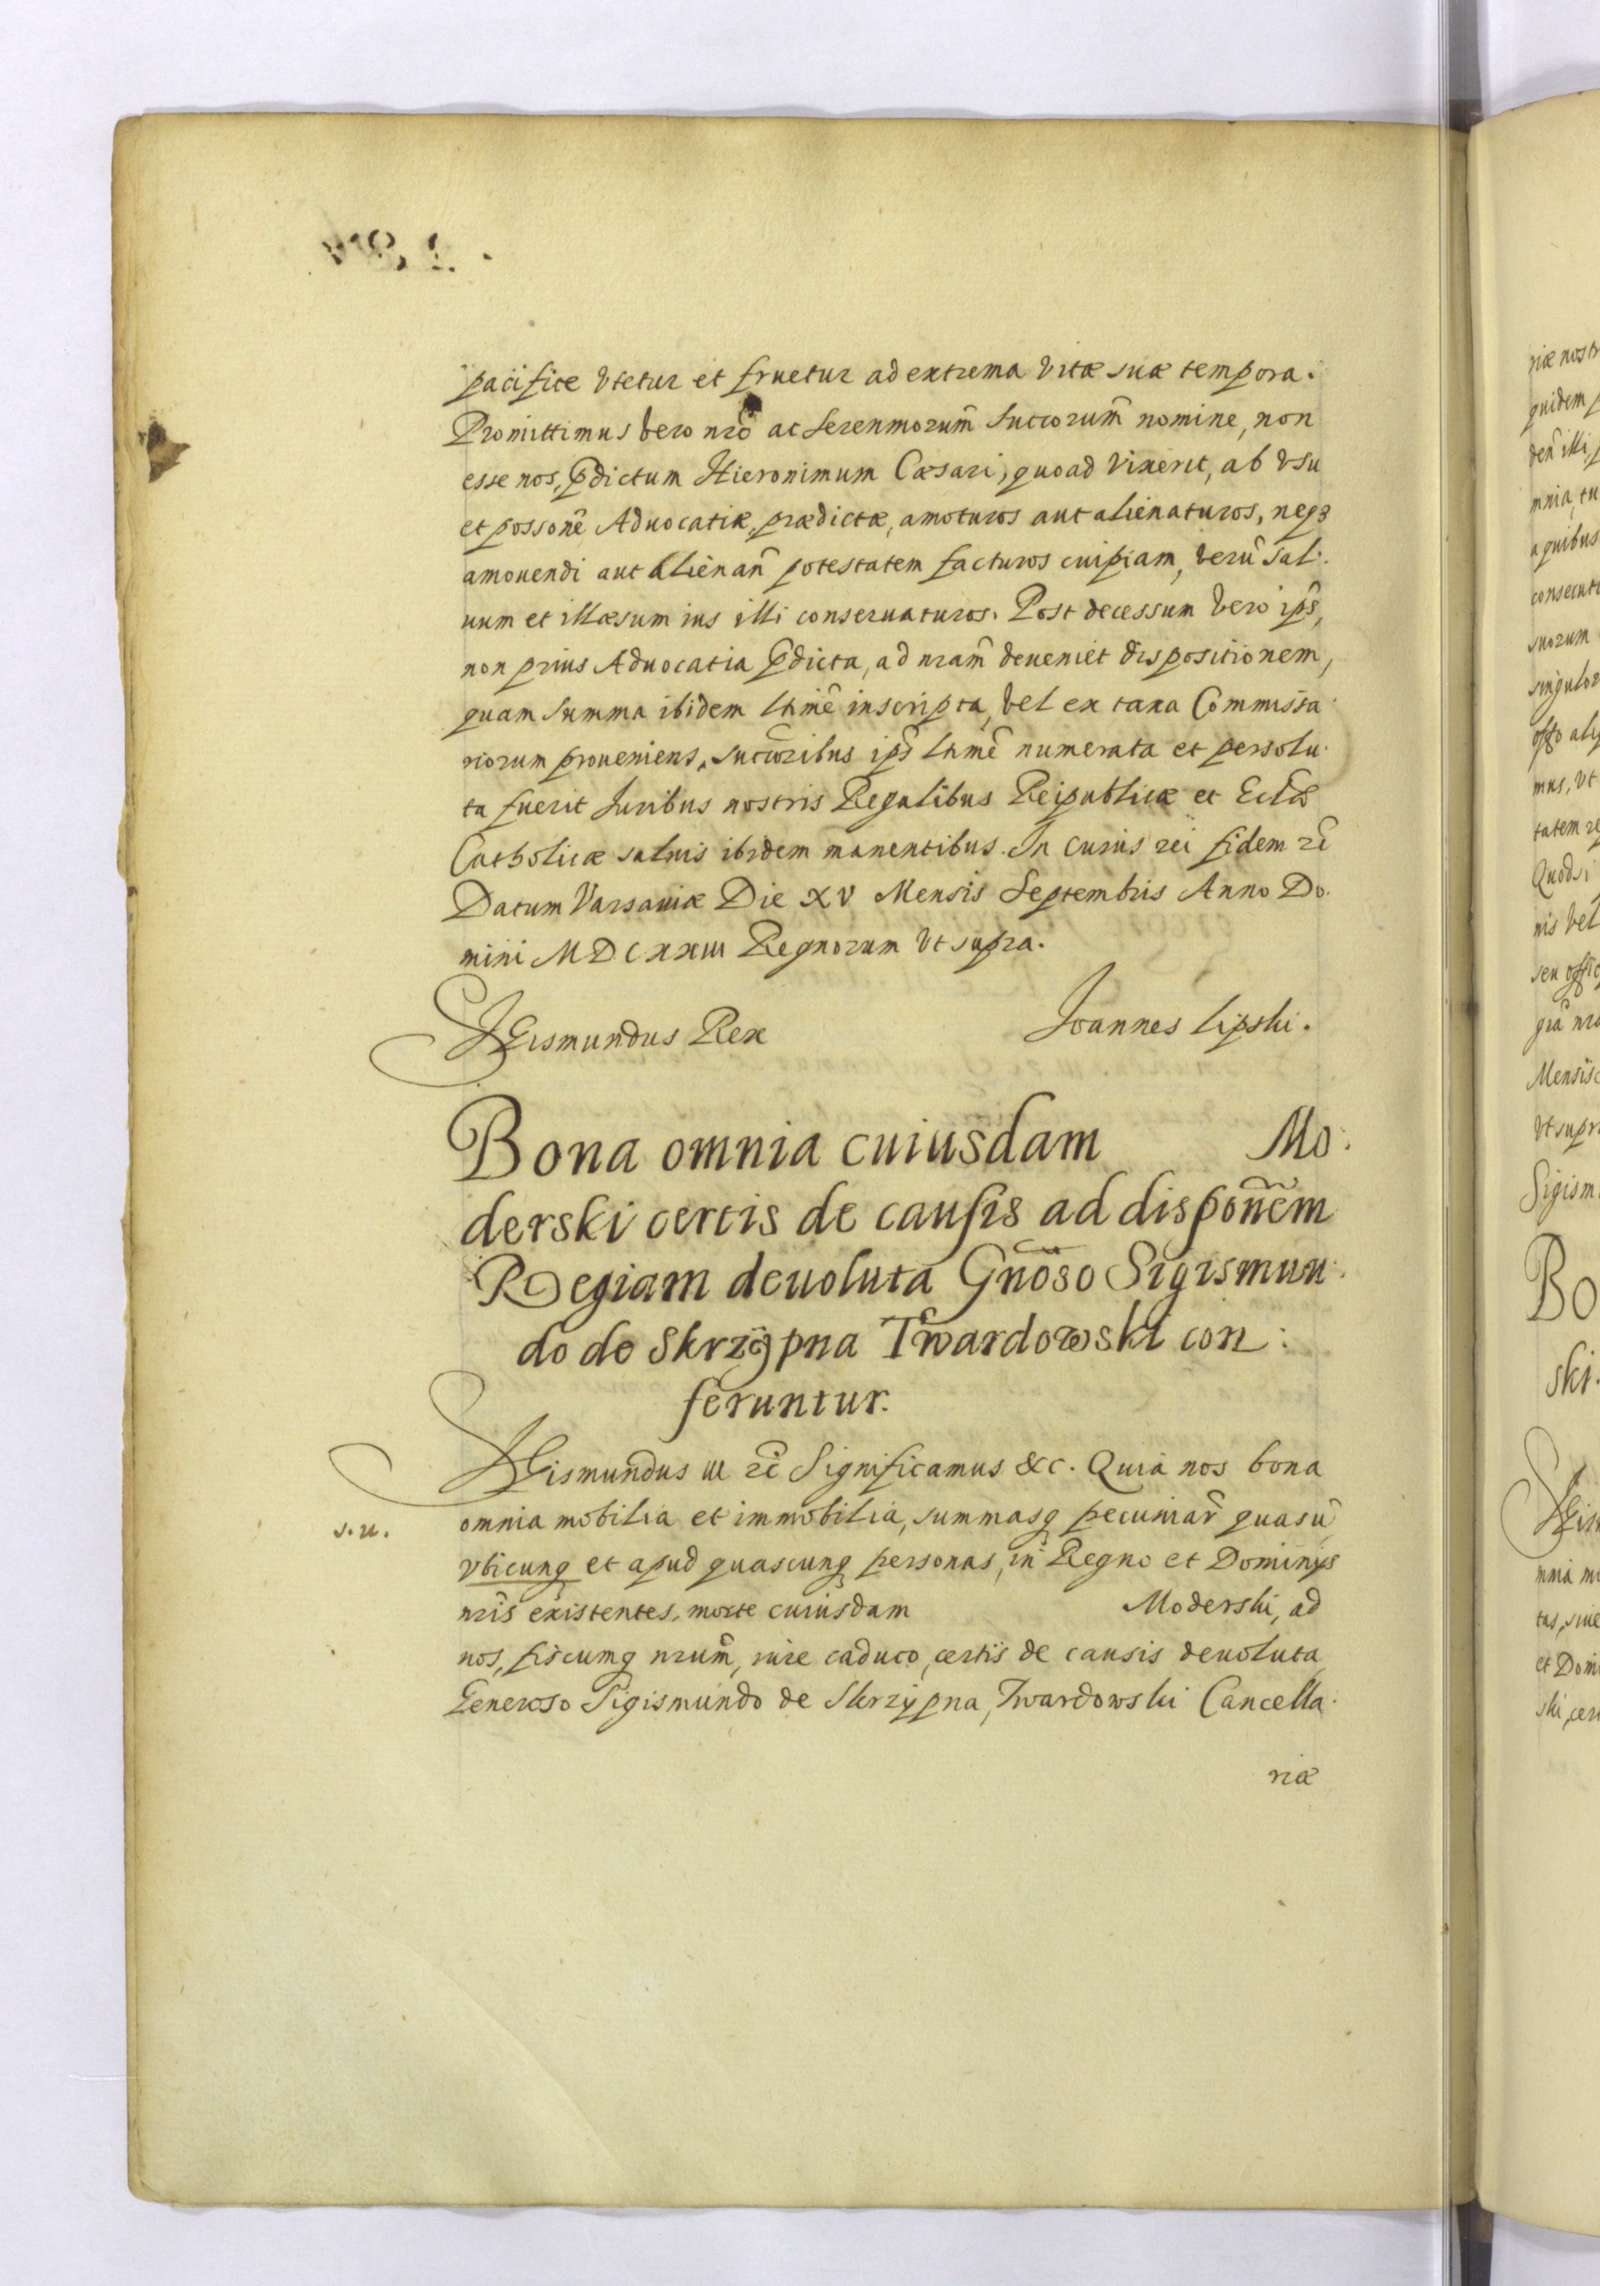 pacifice vtetur et fruetur ad extrema vitæ suæ tempora.
Promittimus vero nrō ac Serenmorum̃ Succorum̃ nomine, non
esse nos, p̄dictum Hieronimum Cæsari, quoad vixerit, ab vsu
et possonē Advocatiæ, prædictæ, amoturos aut alienaturos, neq3
amovendi aut alienañ potestatem facturos cuipiam, verũ sal:
uum et illæsum ius illi conseruaturos. Post decessum vero ips̃,
non prius Advocatia p̄dicta, ad nram̃ deueniet dispositionem,
quam summa ibidem lthmẽ inscripta, vel ex taxa Commissa:
riorum proueniens, succoribus ips̃ lthmẽ numerata et persolu:
ta fuerit Juribus nostris Regalibus Reipublicæ et Ecclæ
Catholicæ saluis ibidem manentibus. In cuius rei fidem rc̃
Datum Varsauiæ Die XV Mensis Septembris Anno Do:
mini MDCXXIII Regnorum vt supra.
SIGismundus Rex Joannes Lipski.
Bona omnia cuiusdam Mo:
derski certis de causis ad disponẽm
Regiam deuoluta Gnõso Sigismun:
do de Skrzÿpna Twardowski con:
feruntur.
SIGismundus III rc̃ Significamus &c. Quia nos bona
omnia mobilia et immobilia, summasq pecuniar̃ quasũ
s. u.
vbicunq et apud quascunq personas, in Regno et Dominÿs
nris̃ existentes, morte cuiusdam Moderski, ad
nos, fiscumq nrum̃, iure caduco, certis de causis deuoluta
Generoso Sigismundo de Skrzÿpna, Twardowski Cancella:
riæ